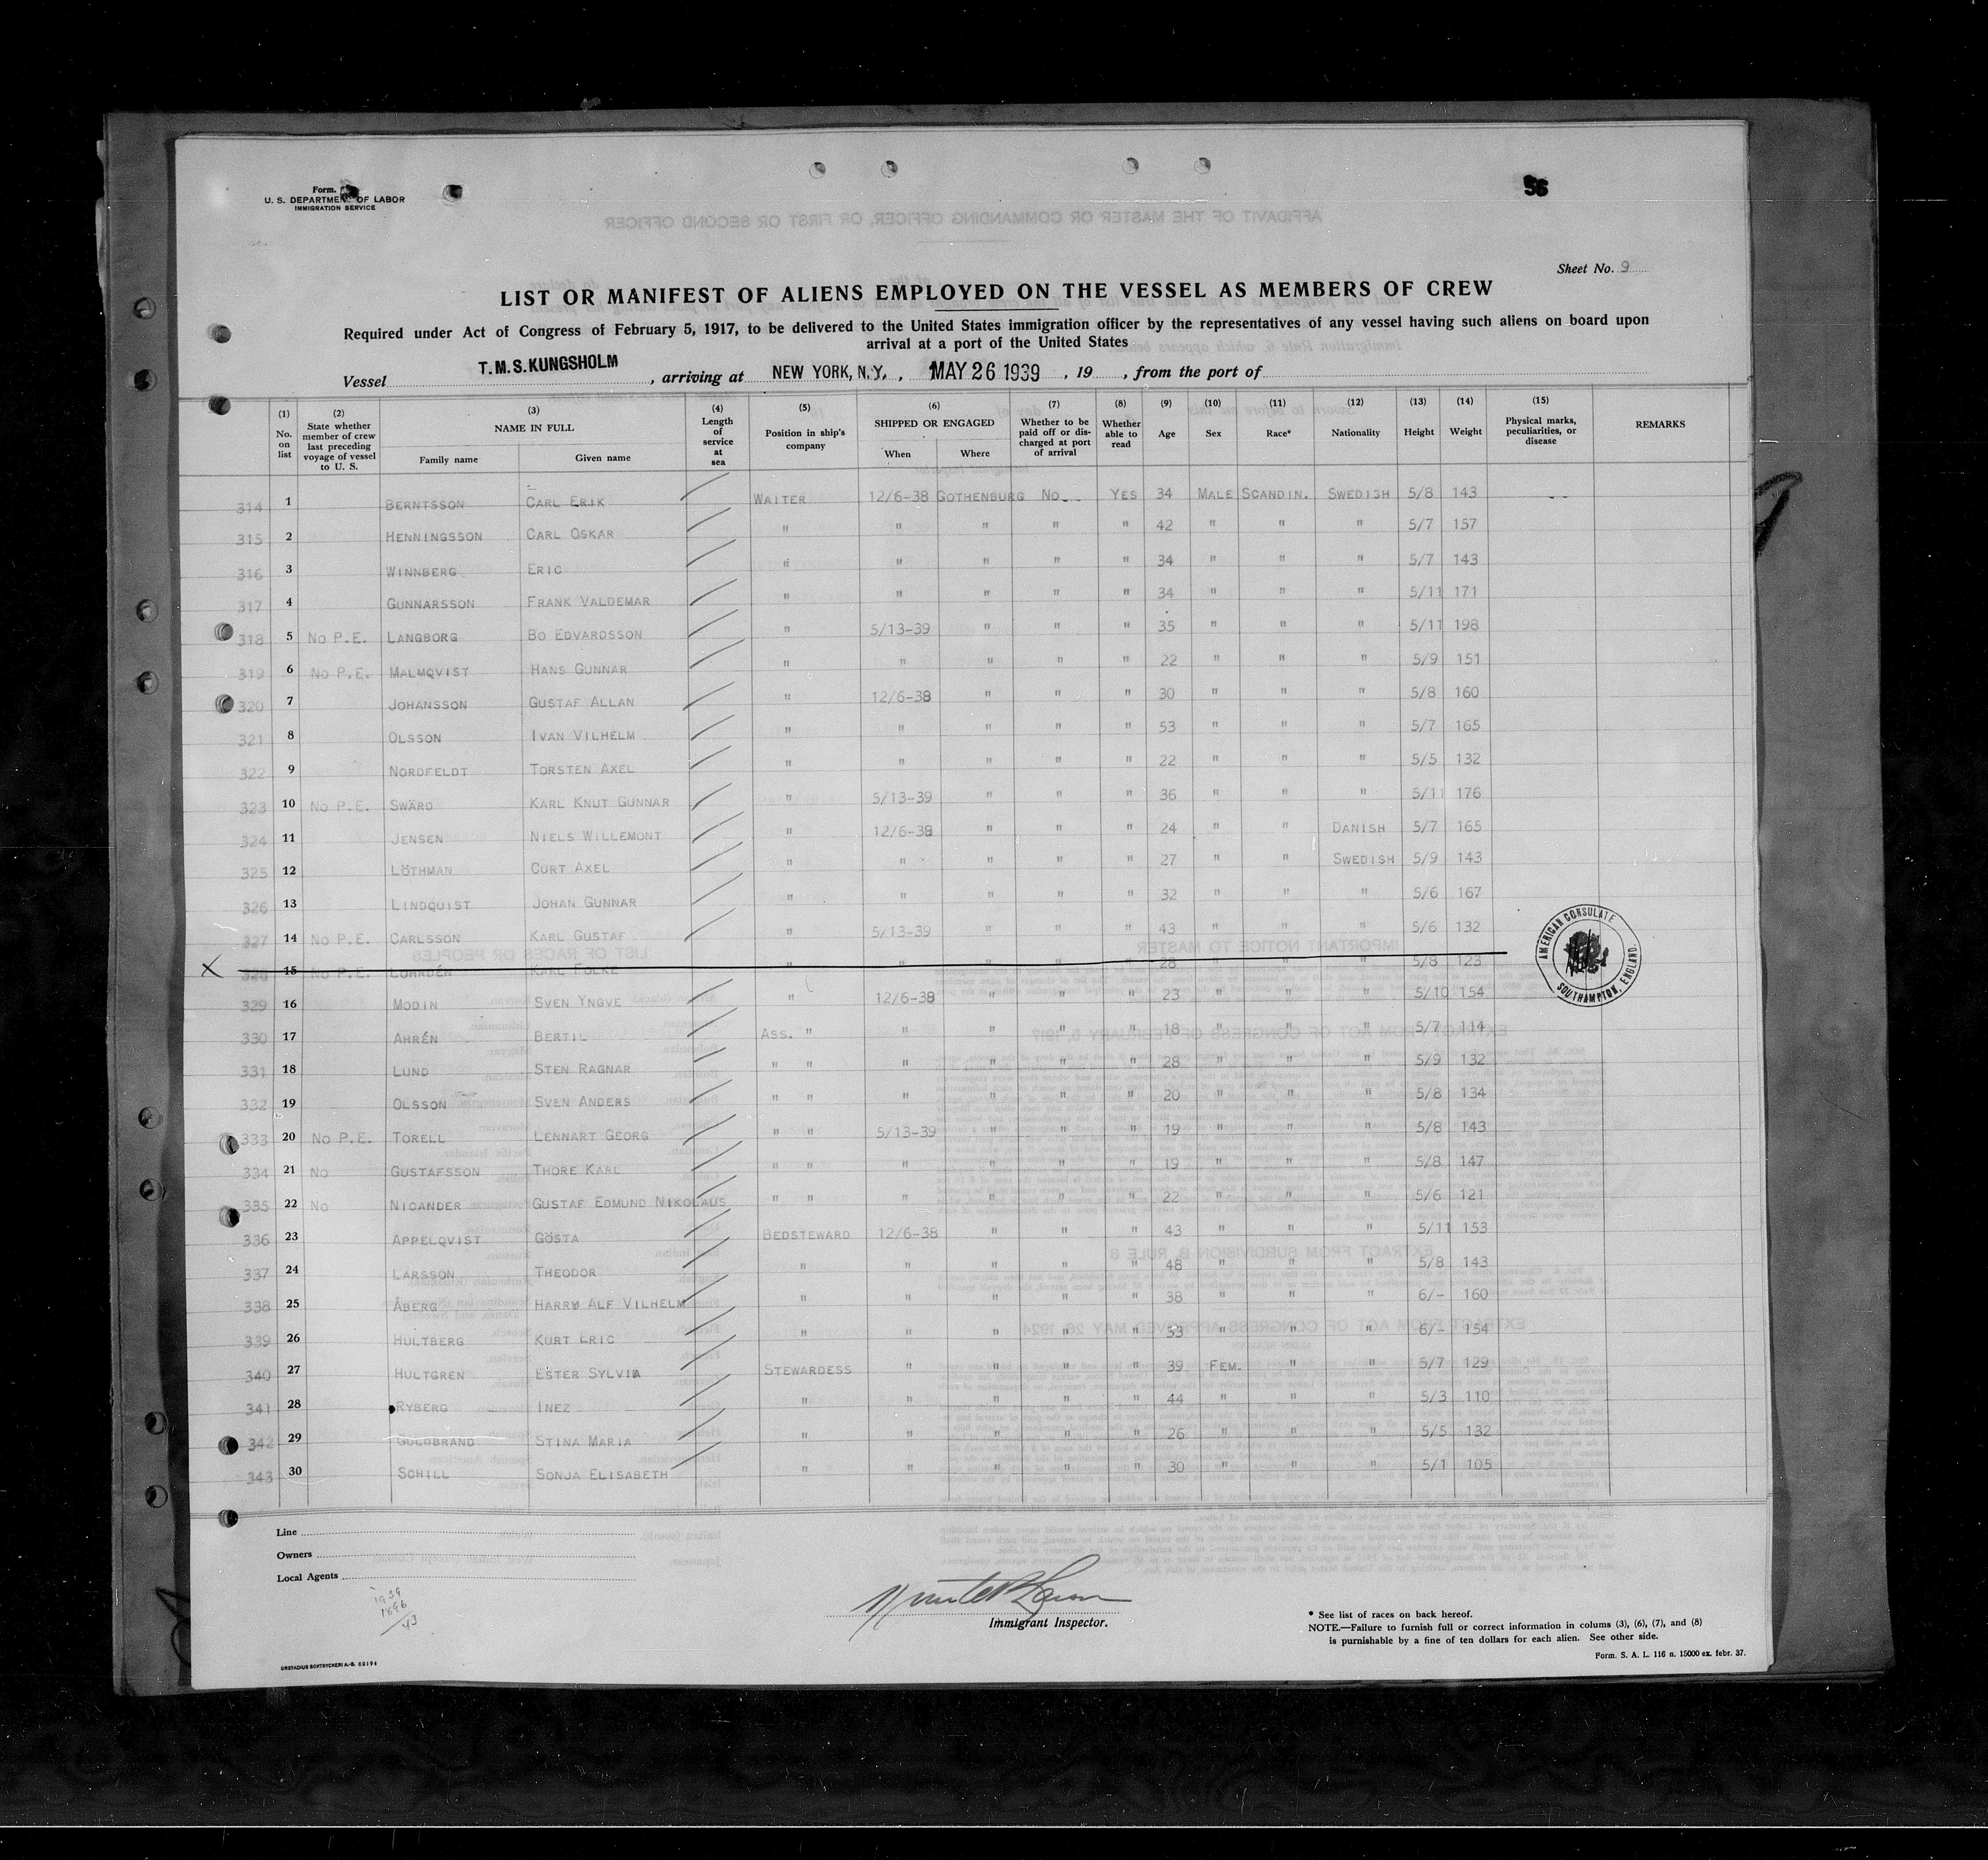 Form.
U. S. DEPARTMENT OF LABOR
IMMIGRATION SERVICE
56
Sheet No. 9
LIST OR MANIFEST OF ALIENS EMPLOYED ON THE VESSEL AS MEMBERS OF CREW
Required under Act of Congress of February 5, 1917, to be delivered to the United States immigration officer by the representatives of any vessel having such aliens on board upon
arrival at a port of the United States
Vessel T.M.S.KUNGSHOLM, arriving at NEW YORK, N.Y., MAY 26 1939, 19 , from the port of
(1) No. on list (2) State whether member of crew last preceding voyage of vessel to U. S. (3) NAME IN FULL Family name Given name (4) Length of service at sea (5) Position in ship's company (6) SHIPPED OR ENGAGED When Where (7) Whether to be paid off or discharged at port of arrival (8) Whether able to read (9) Age (10) Sex (11) Race* (12) Nationality (13) Height (14) Weight (15) Physical marks, peculiarities, or disease REMARKS
314 1 BERNTSSON CARL ERIK WAITER 12/6-38 GOTHENBURG NO YES 34 MALE SCANDIN. SWEDISH 5/8 143
315 2 HENNINGSSON CARL OSKAR " " " " " 42 " " " 5/7 157
316 3 WINNBERG ERIC " " " " " 34 " " " 5/7 143
317 4 GUNNARSSON FRANK VALDEMAR " " " " " 34 " " " 5/11 171
318 5 NO P.E. LANGBORG BO EDVARDSSON " 5/13-39 " " " 35 " " " 5/11 198
319 6 NO P.E. MALMQVIST HANS GUNNAR " " " " " 22 " " " 5/9 151
320 7 JOHANSSON GUSTAF ALLAN " 12/6-38 " " " 30 " " " 5/8 160
321 8 OLSSON IVAN VILHELM " " " " " 53 " " " 5/7 165
322 9 NORDFELDT TORSTEN AXEL " " " " " 22 " " " 5/5 132
323 10 NO P.E. SWÄRD KARL KNUT GUNNAR " 5/13-39 " " " 36 " " " 5/11 176
324 11 JENSEN NIELS WILLEMONT " 12/6-38 " " " 24 " " DANISH 5/7 165
325 12 LÖTHMAN CURT AXEL " " " " " 27 " " SWEDISH 5/9 143
326 13 LINDQUIST JOHAN GUNNAR " " " " " 32 " " " 5/6 167
327 14 NO P.E. CARLSSON KARL GUSTAF " 5/13-39 " " " 43 " " " 5/6 132
X 328 15 NO P.E. KARL FOLKE " " " " " 28 " " " 5/8 123
329 16 MODIN SVEN YNGVE " 12/6-38 " " " 23 " " " 5/10 154
330 17 AHRÉN BERTIL ASS. " " " " " 18 " " " 5/7 114
331 18 LUND STEN RAGNAR " " " " " " 28 " " " 5/9 132
332 19 OLSSON SVEN ANDERS " " " " " " 20 " " " 5/8 134
333 20 NO P.E. TORELL LENNART GEORG " " 5/13-39 " " " 19 " " " 5/8 143
334 21 NO GUSTAFSSON THORE KARL " " " " " " 19 " " " 5/8 147
335 22 NO NICANDER GUSTAF EDMUND NIKOLAUS " " " " " " 22 " " " 5/6 121
336 23 APPELQVIST GÖSTA BEDSTEWARD 12/6-38 " " " 43 " " " 5/11 153
337 24 LARSSON THEODOR " " " " " 48 " " " 5/8 143
338 25 ÅBERG HARRY ALF VILHELM " " " " " 38 " " " 6/- 160
339 26 HULTBERG KURT ERIC " " " " " 53 " " " 6/- 154
340 27 HULTGREN ESTER SYLVIA STEWARDESS " " " " 39 FEM. " " 5/7 129
341 28 RYBERG INEZ " " " " " 44 " " " 5/3 110
342 29 GULDBRAND STINA MARIA " " " " " 26 " " " 5/5 132
343 30 SCHILL SONJA ELISABETH " " " " " 30 " " " 5/1 105
AMERICAN CONSULATE
SOUTHAMPTON, ENGLAND.
Line
Owners
Local Agents
1939
1896
43
Immigrant Inspector.
* See list of races on back hereof.
NOTE.—Failure to furnish full or correct information in colums (3), (6), (7), and (8)
is punishable by a fine of ten dollars for each alien. See other side.
Form. S. A. L. 116 n. 15000 ex. febr. 37.